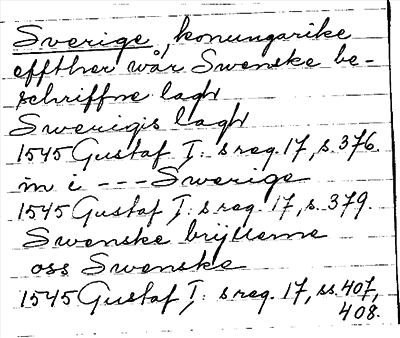 Sverige, konungarike
effther wår Swenske be-
schriffne lagh
Swerigis lagh
1545 Gustaf I: s reg. 17, s. 376.
in i --- Swerige
1545 Gustaf I: s reg. 17, s. 379.
Swenske
oss Swenske
1545 Gustaf I: s reg. 17, ss. 407,
408.